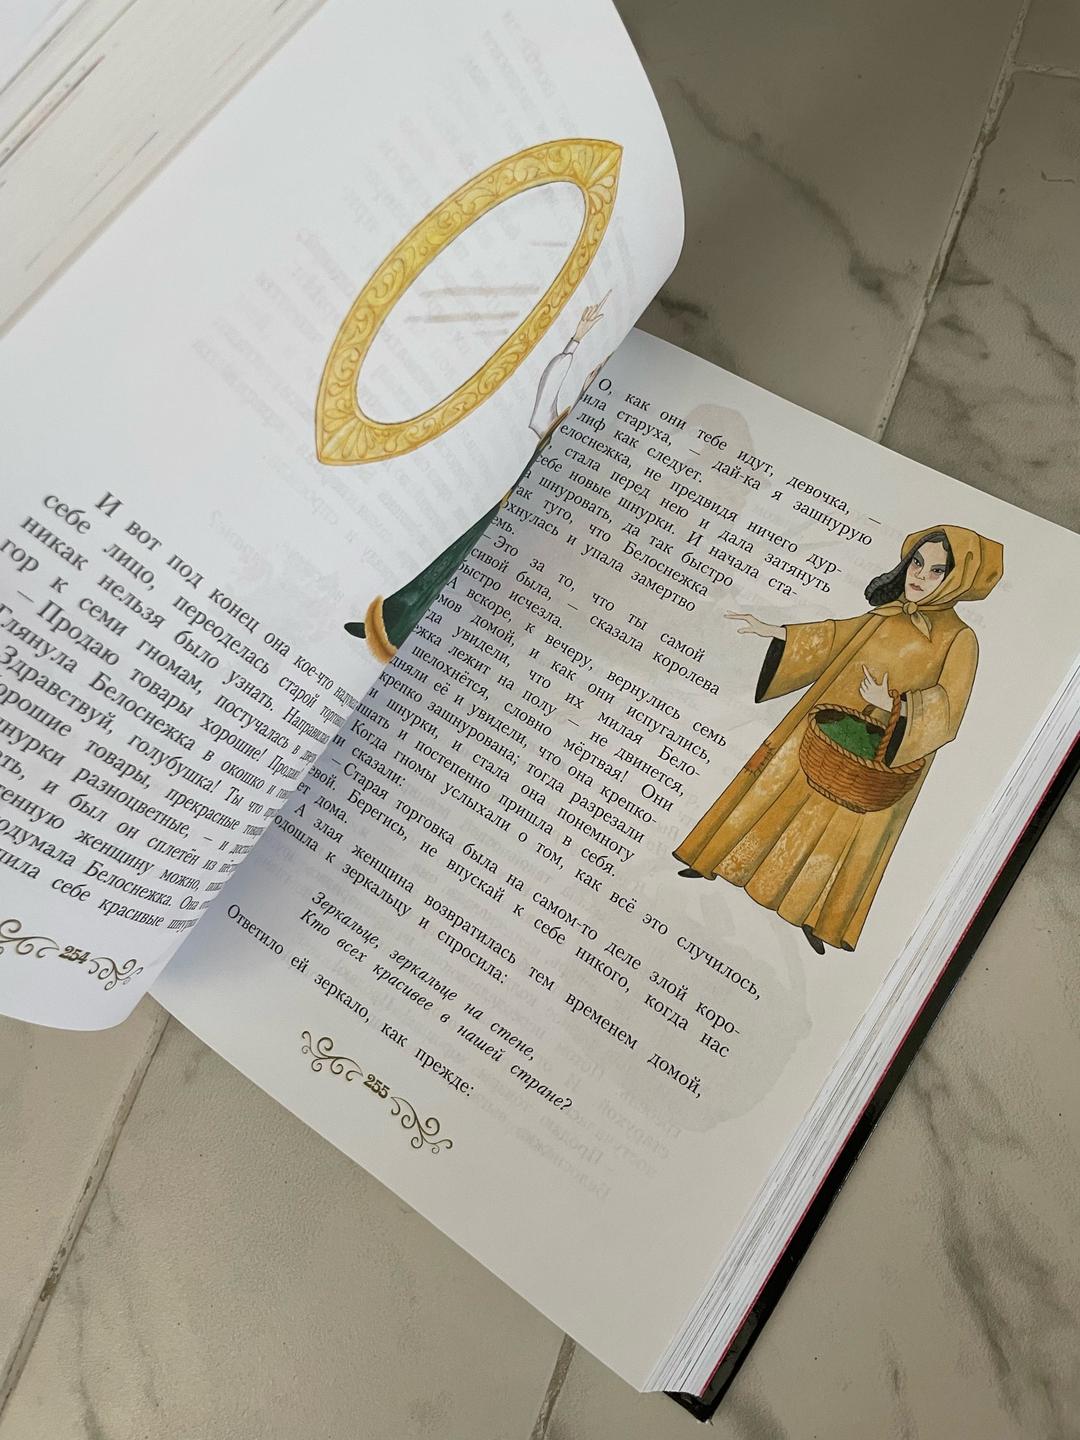 И вот под конец она кое-что
себе лицо, переоделась старой
никак нельзя было узнать. Направилась
гор к семи гномам, постучалась в
– Продаю товары хорошие! Продаю!
Глянула Белоснежка в окошко и
Здравствуй, голубушка! Ты что
хорошие товары, прекрасные
шнурки разноцветные, – и
и был он сплетён из
женщину можно,
подумала Белоснежка. Она
себе красивые
254
О, как они тебе идут, девочка, –
старуха, – дай-ка я зашнурую
лиф как следует.
елоснежка, не предвидя ничего дур-
стала перед нею и дала затянуть
себе новые шнурки. И начала ста-
шнуровать, да так быстро
так туго, что Белоснежка
охнулась и упала замертво
емь.
– Это за то, что ты самой
сивой была, – сказала королева
быстро исчезла.
А вскоре, к вечеру, вернулись семь
омов домой, и как они испугались,
увидели, что их милая Бело-
ежка лежит на полу – не двинется,
шелохнётся, словно мёртвая! Они
подняли её и увидели, что она крепко-
крепко зашнурована; тогда разрезали
и шнурки, и стала она понемногу
и постепенно пришла в себя.
Когда гномы услыхали о том, как всё это случилось,
и сказали:
– Старая торговка была на самом-то деле злой коро-
евой. Берегись, не впускай к себе никого, когда нас
ет дома.
А злая женщина возвратилась тем временем домой,
одошла к зеркальцу и спросила:
Зеркальце, зеркальце на стене,
Кто всех красивее в нашей стране?
Ответило ей зеркало, как прежде:
255